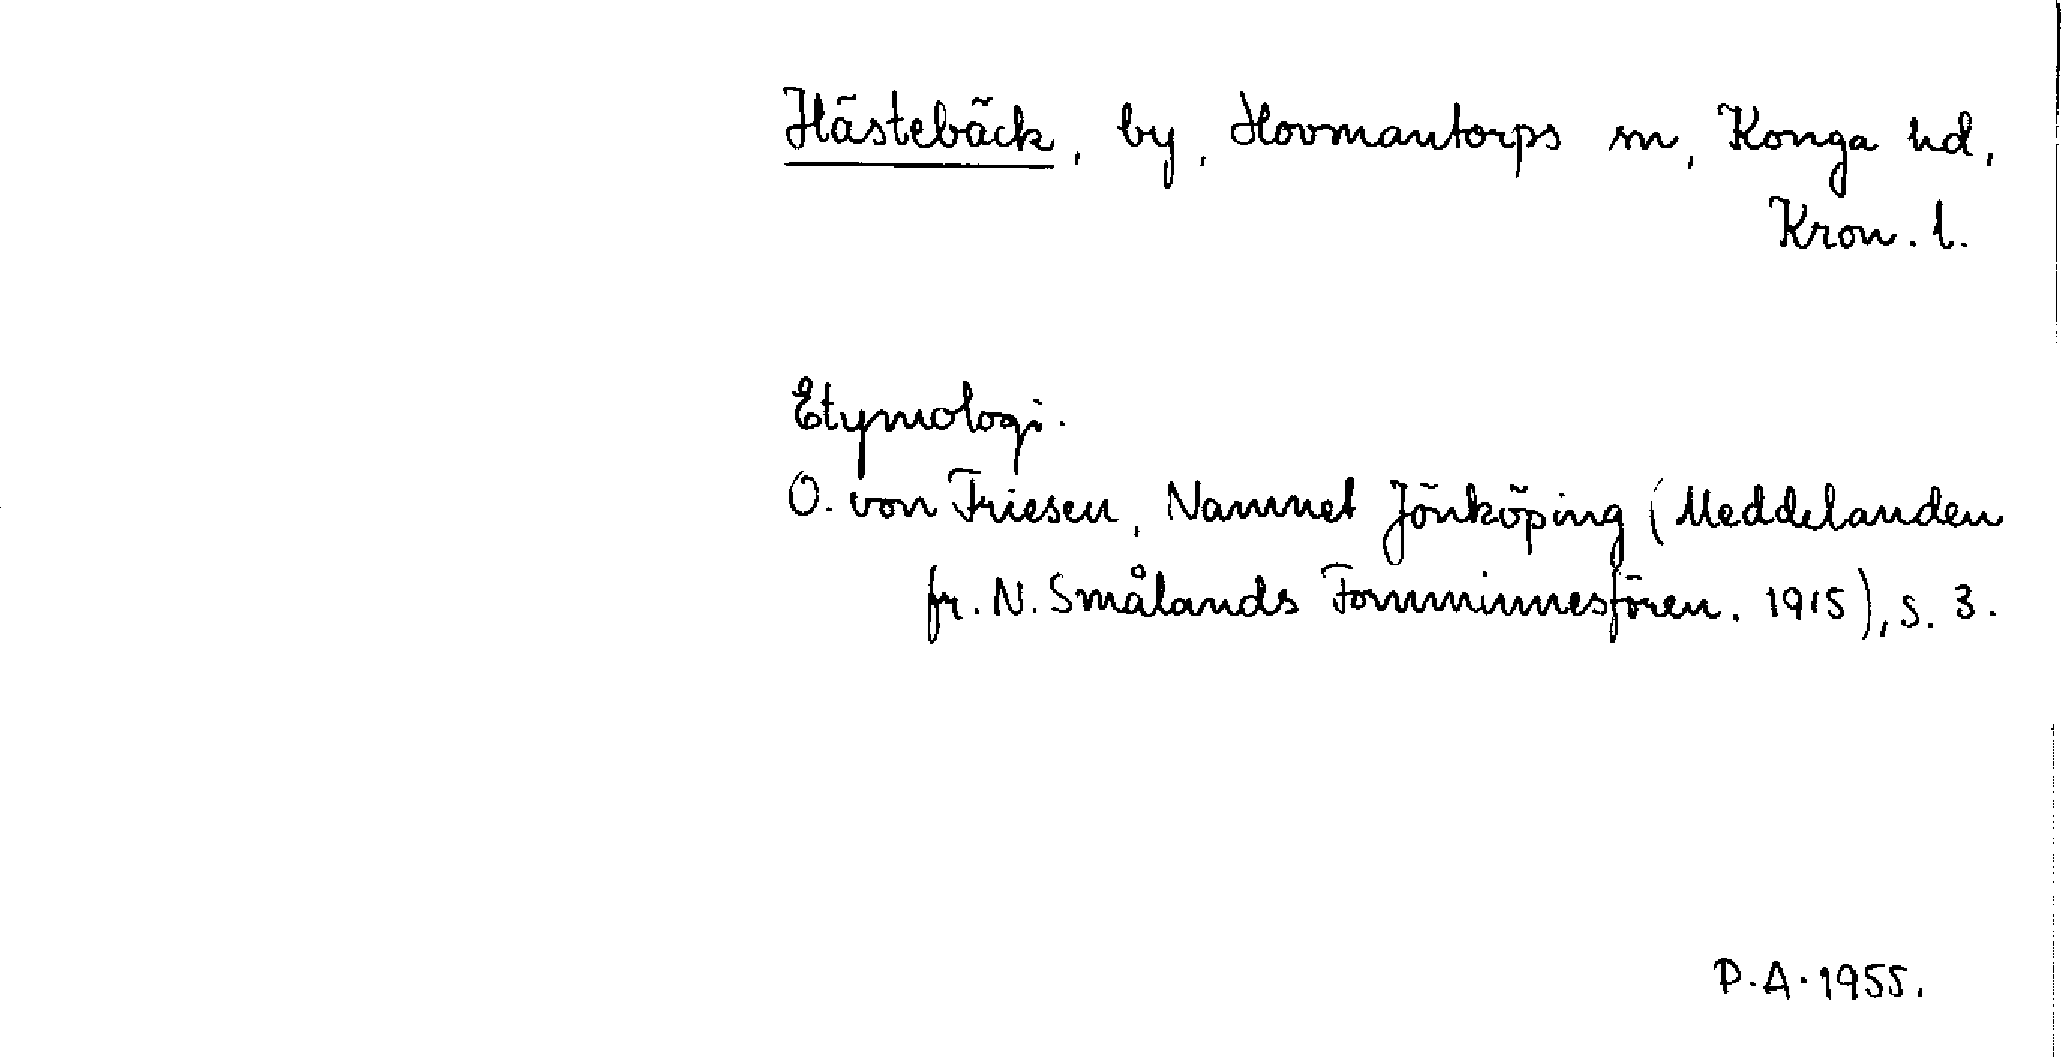 Hästebäck, by, Hovmantorps sn, Konga hd,
Kron. l.
Etymologi.
O. von Friesen, Namnet Jönköping (Meddelanden
fr. N. Smålands Fornminnesfören. 1915), s. 3.
P.A. 1955.